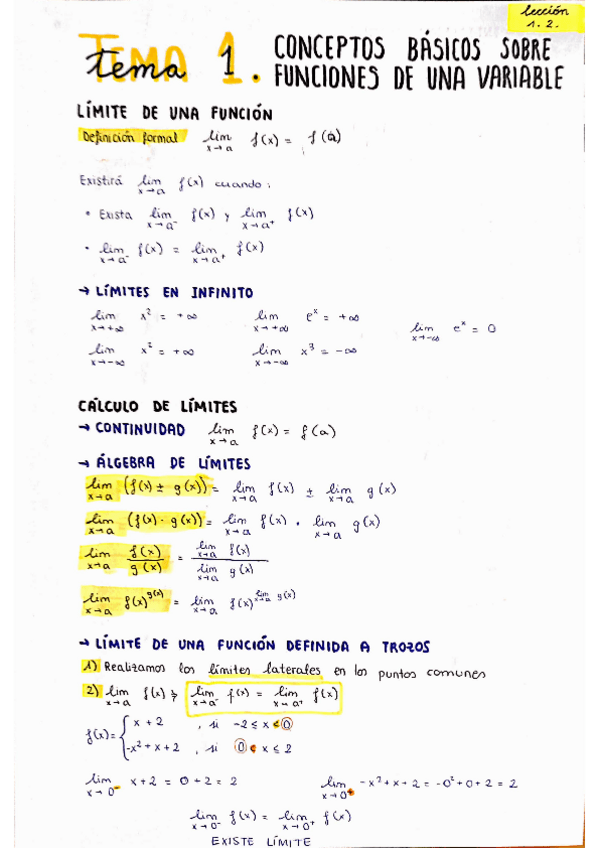 lección
1. 2.
tema 1. CONCEPTOS BÁSICOS SOBRE
FUNCIONES DE UNA VARIABLE
LÍMITE DE UNA FUNCIÓN
Definición formal lim x→a f(x) = f(a)
Existirá lim x→a f(x) cuando:
• Exista lim x→a⁻ f(x) y lim x→a⁺ f(x)
• lim x→a⁻ f(x) = lim x→a⁺ f(x)
→ LÍMITES EN INFINITO
lim x→+∞ x² = +∞ lim x→+∞ eˣ = +∞ lim x→-∞ eˣ = 0
lim x→-∞ x² = +∞ lim x→-∞ x³ = -∞
CÁLCULO DE LÍMITES
→ CONTINUIDAD lim x→a f(x) = f(a)
→ ÁLGEBRA DE LÍMITES
lim x→a (f(x) ± g(x)) = lim x→a f(x) ± lim x→a g(x)
lim x→a (f(x) · g(x)) = lim x→a f(x) · lim x→a g(x)
lim x→a f(x)/g(x) = lim x→a f(x) / lim x→a g(x)
lim x→a f(x)^g(x) = lim x→a f(x)^lim x→a g(x)
→ LÍMITE DE UNA FUNCIÓN DEFINIDA A TROZOS
1) Realizamos los límites laterales en los puntos comunes
2) lim x→a f(x) ⇒ lim x→a⁻ f(x) = lim x→a⁺ f(x)
f(x) = { x + 2 , si -2 ≤ x < 0
-x² + x + 2 , si 0 < x ≤ 2
lim x→0⁻ x + 2 = 0 + 2 = 2 lim x→0⁺ -x² + x + 2 = -0² + 0 + 2 = 2
lim x→0⁻ f(x) = lim x→0⁺ f(x)
EXISTE LÍMITE